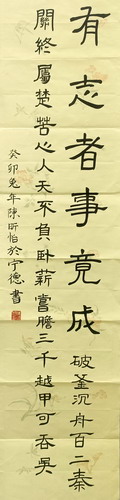 有志者事竟成破釜沉舟百二秦
關終屬楚苦心人天不負臥薪嘗膽三千越甲可吞吳
癸卯兔年陳昕怡於宁德書